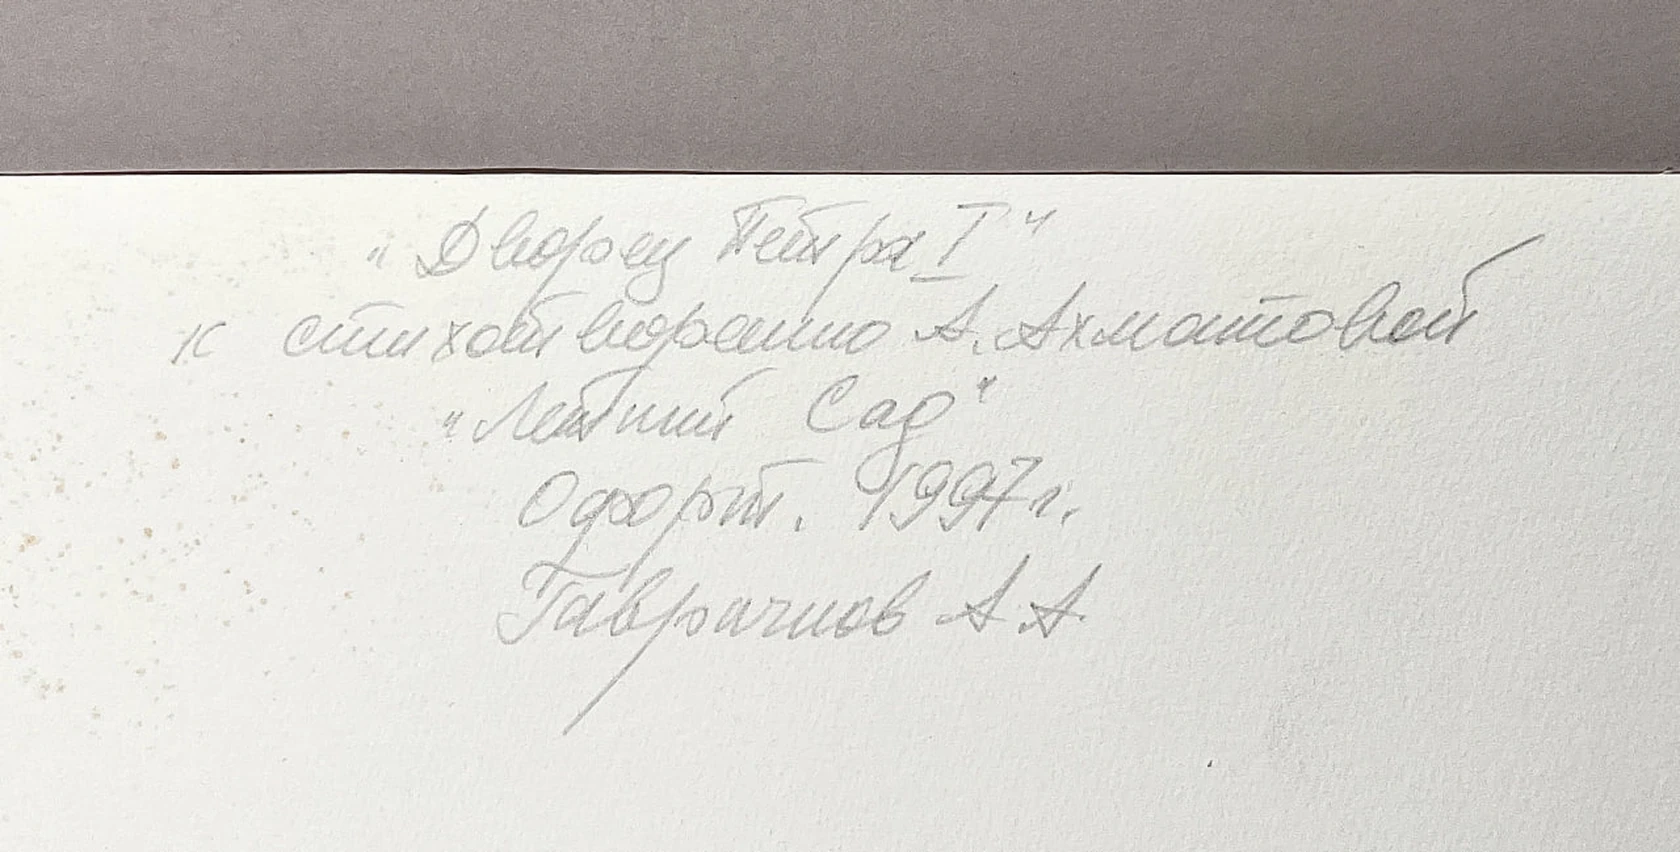 "Дворец Петра I"
к стихотворению А. Ахматовой
"Летний Сад"
Офорт. 1997г.
Гавричков А.А.